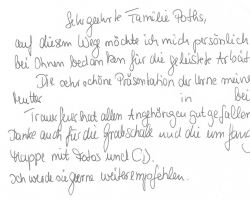 Sehr geehrte Familie Poths,
auf diesem Wege möchte ich mich persönlich
bei Ihnen bedanken für die geleistete Arbeit
Die sehr schöne Präsentation der Urne meine
Mutter in bei
Trauerfeier hat allen Angehörigen gut gefallen
Danke auch für die Grabschale und die umfang
Mappe mit Fotos und CD.
Ich werde sie gerne weiterempfehlen.